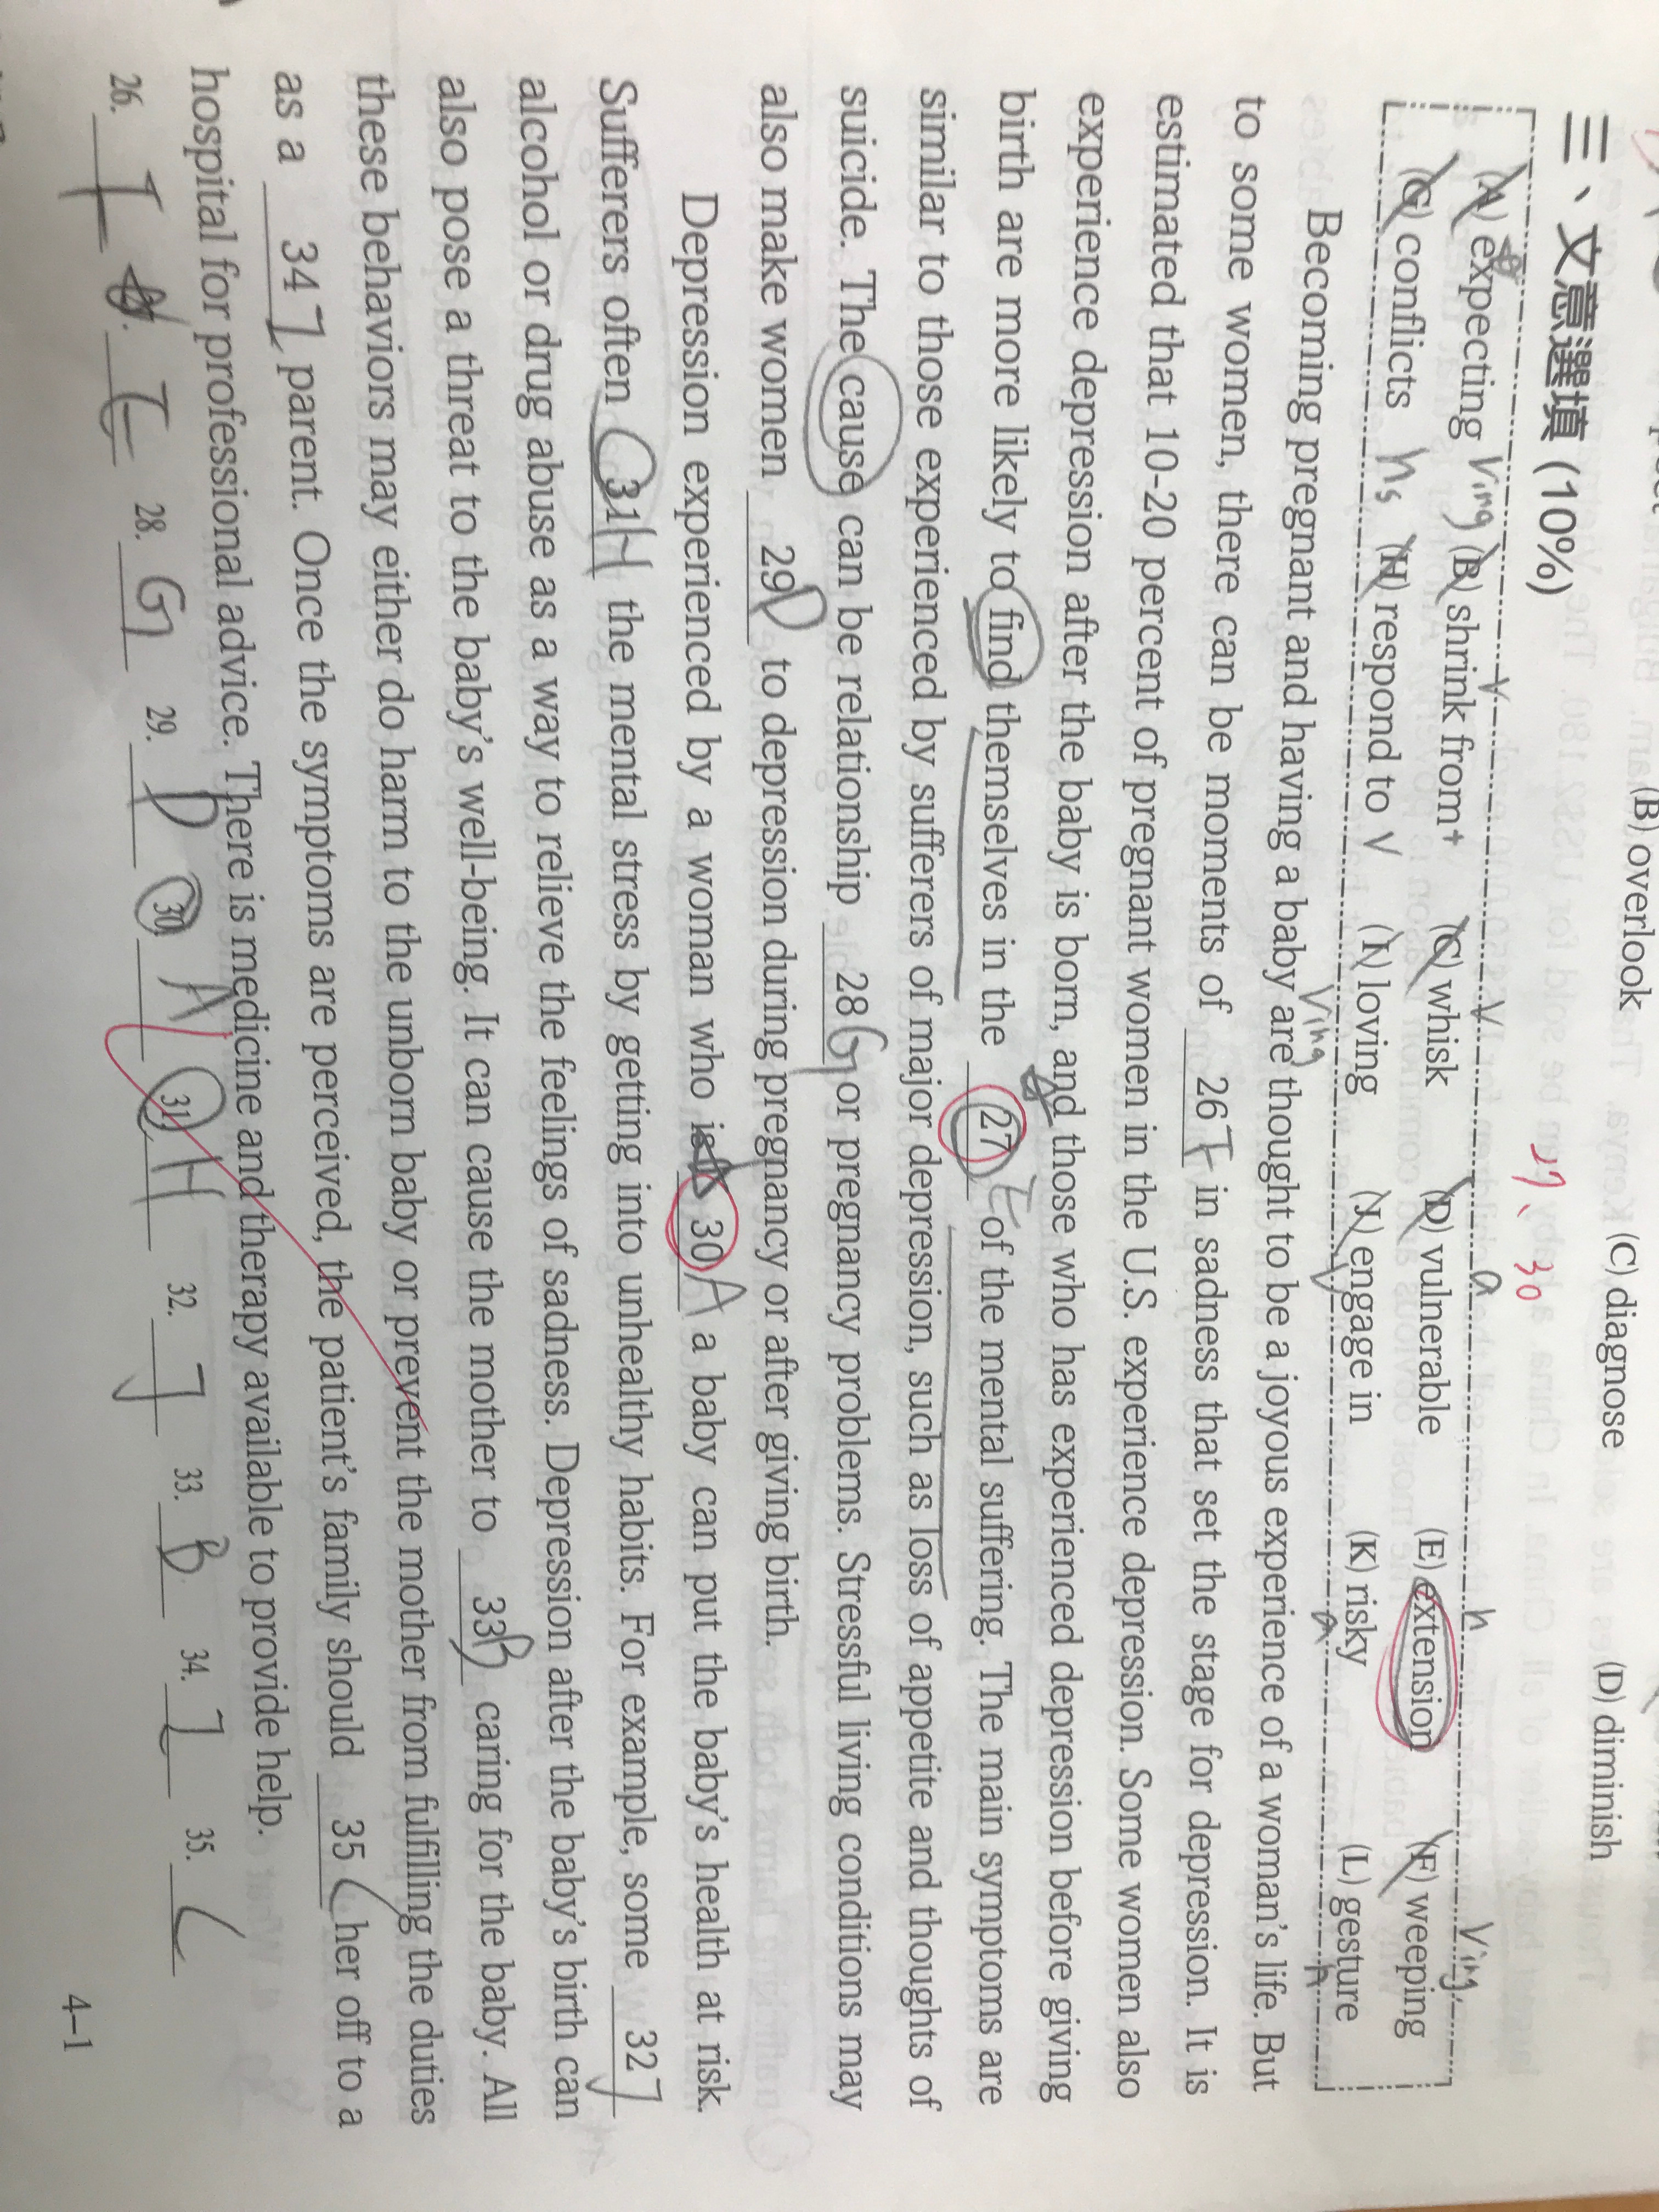 (B) overlook (C) diagnose (D) diminish
27、30
三、文意選填 (10%)
(A) expecting Ving (B) shrink from (C) whisk (D) vulnerable (E) extension (F) weeping Ving
(G) conflicts (H) respond to V (I) loving Ving (J) engage in (K) risky (L) gesture
Becoming pregnant and having a baby are thought to be a joyous experience of a woman's life. But
to some women, there can be moments of 26 F in sadness that set the stage for depression. It is
estimated that 10-20 percent of pregnant women in the U.S. experience depression. Some women also
experience depression after the baby is born, and those who has experienced depression before giving
birth are more likely to find themselves in the 27 E of the mental suffering. The main symptoms are
similar to those experienced by sufferers of major depression, such as loss of appetite and thoughts of
suicide. The cause can be relationship 28 G or pregnancy problems. Stressful living conditions may
also make women 29 D to depression during pregnancy or after giving birth.
Depression experienced by a woman who is 30 A a baby can put the baby's health at risk.
Sufferers often 31 H the mental stress by getting into unhealthy habits. For example, some 32 J
alcohol or drug abuse as a way to relieve the feelings of sadness. Depression after the baby's birth can
also pose a threat to the baby's well-being. It can cause the mother to 33 B caring for the baby. All
these behaviors may either do harm to the unborn baby or prevent the mother from fulfilling the duties
as a 34 I parent. Once the symptoms are perceived, the patient's family should 35 C her off to a
hospital for professional advice. There is medicine and therapy available to provide help.
26. F E 28. G 29. D 30. A 31. H 32. J 33. B 34. I 35. C
4–1